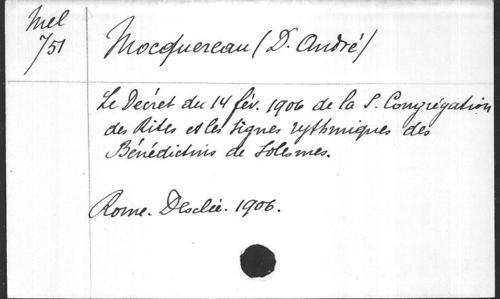 Mel
751
Mocquereau (D. André)
Le Décret du 14 fév. 1906 de la S. Congrégation
des Rites et les signes rythmiques des
Bénédictins de Solesmes.
Rome. Desclée. 1906.